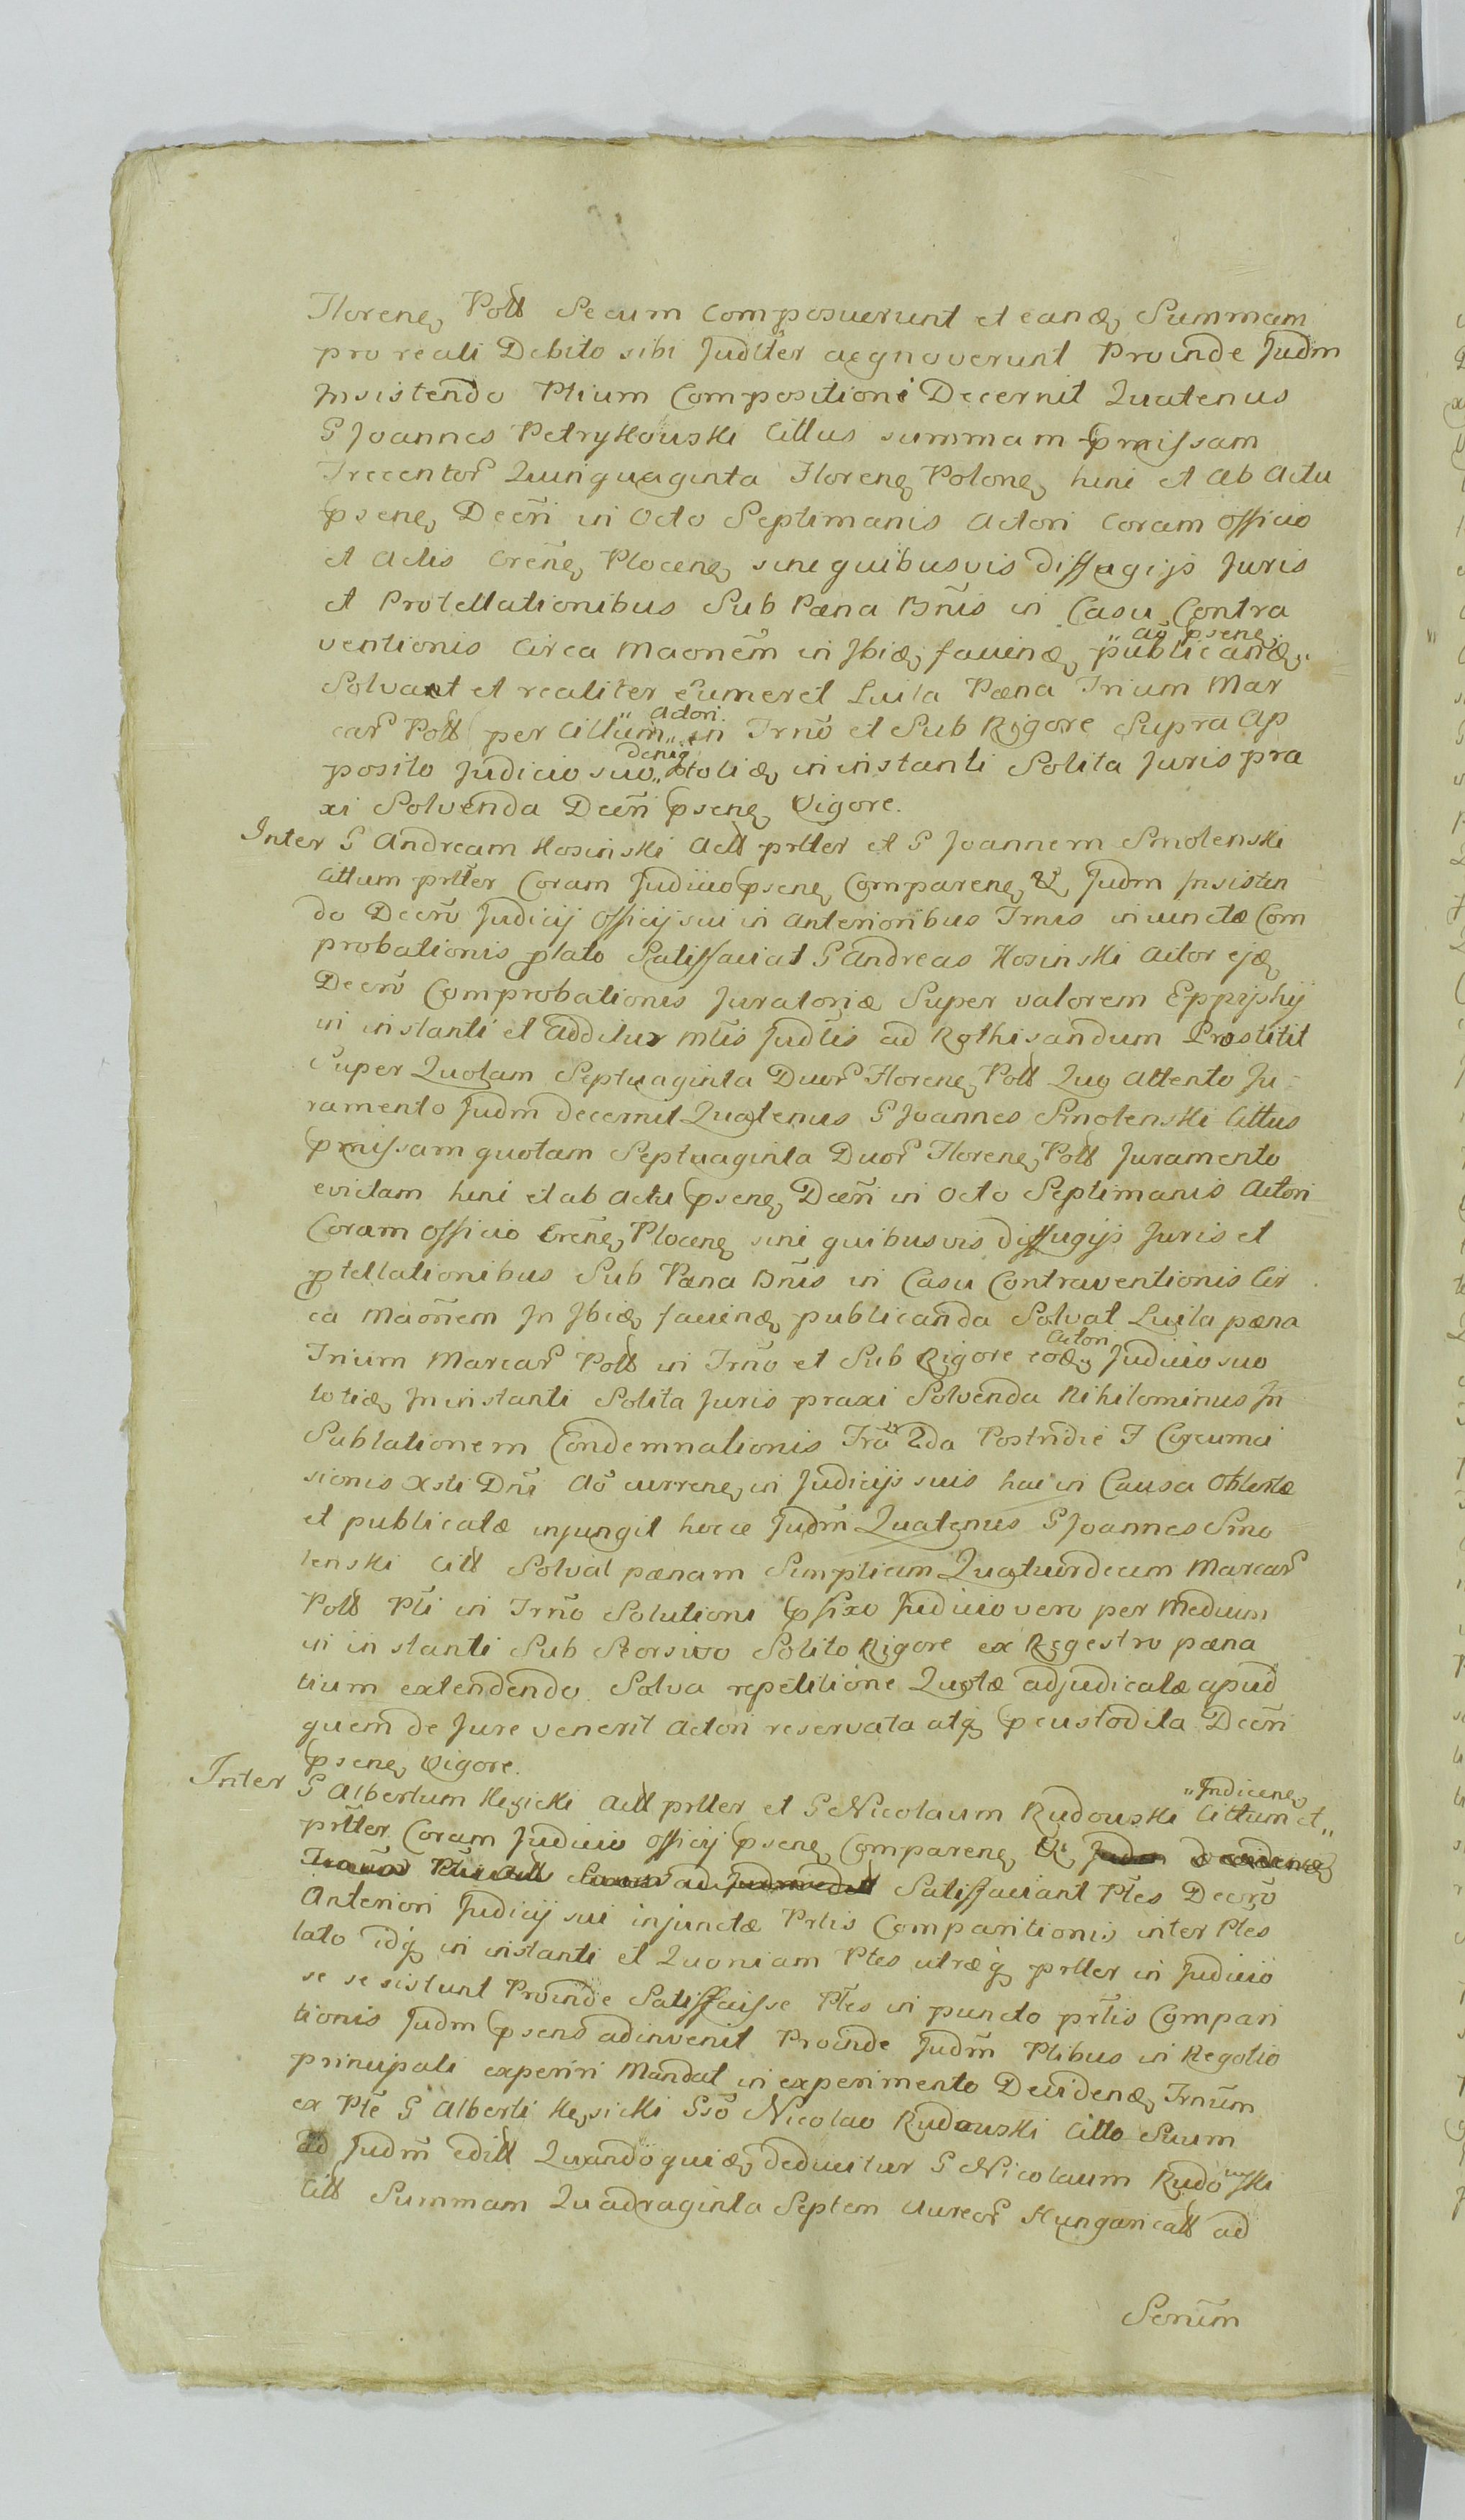 Florenę Poll Secum composuerunt et eandę Summam
pro reali Debito sibi Judlter aegnoverunt Proinde Judm̃
Insistendo Ptium Compositioni Decernit Quatenus
G Joannes Petrykowski Cittus summam pmissam
Trecentor Quinquaginta Florenę Polonę hinc et ab actu
psenę Decrĩ in Octo Septimanis actori Coram officio
et actis Crẽnę Plocenę sine quibusvis diffugijs Juris
et Protellationibus Sub Pæna Bnĩs in Casu Contra
ventionis circa maonẽm in Ibidę faciendę „aõ psenę„ publicandę
Solvat et realiter eumeret Luita Pæna Trium Mar
car Poll per Cittum „actori„ in Trnõ et Sub Rigore Supra ap
posito Judicio suo „deniq„ totidę in instanti Solita Juris pra
xi Solvenda Decrĩ psenę Vigore.
Inter G Andream Kosinski Act prlter et G Joannem Smolenski
Cittum prlter Coram Judicio psenę Comparenę & Judm Insisten
do Decrõ Judicij officij sui in anterioribus Trnis iniunctæ Com
probationis plato Satisfaciat G Andreas Kosinski actor ejdę
Decrõ Comprobationis Juratoriæ Super valorem Eppiphij
in instanti et additur mtis Judlis ad Rothisandum Præstitit
Super Quotam Septuaginta Duor Florenę Poll Quo attento Ju
ramento Judm decernit Quatenus G Joannes Smolenski Cittus
pmissam quotam Septuaginta Duor Florenę Poll Juramento
evictam hinc et ab actu psenę Decrĩ in Octo Septimanis Actori
Coram officio Crẽnę Plocenę sine quibusvis diffugijs Juris et
ptellationibus Sub Pæna Bnĩs in Casu Contraventionis Cir
ca Maonẽm In Ibidę faciendę publicanda Solvat Luita pæna
Trium Marcar Poll in Trnõ et Sub Rigore eodę „actori„ Judicio suo
totidę In instanti Solita Juris praxi Solvenda Nihilominus In
Sublationem Condemnationis Frã 2da Postridie F Circumci
sionis Xsti Dnĩ Aõ currenę in Judicijs suis hac in Causa Obtentæ
et publicatæ injungit hocce Judm̃ Quatenus G Joannes Smo
lenski Citt Solvat pænam Simplicem Quatuordecim Marcar
Poll Pti in Trnõ Solutioni pfixo Judicio vero per Medium
in instanti Sub Seorsivo Solito Rigore ex Regestro pæna
lium extendendo Salva repetitione Quotæ adjudicatæ apud
quem de Jure venerit actori reservata atq pcustodita Decrĩ
psenę Vigore.
Inter G Albertum Kęsicki Act prlter et G Nicolaum Rudowski Cittum et „Indicenę„
prlter Coram Judicio officij psenę Comparenę &
Satisfaciant Ptes Decrõ
Anteriori Judicij sui injunctæ Prlis Comparitionis inter Ptes
lato idq in instanti et Quoniam Ptes utræq prlter in Judicio
se se sistunt Proinde Satisfacisse Ptes in puncto prlis Compari
tionis Judm psens adinvenit Proinde Judm̃ Ptibus in Negotio
principali experiri Mandat in experimento Decidendę Trnũm
ex Pte G Alberti Kęsicki Gsõ Nicolao Rudowski Citto Suum
ad Judm̃ editt Quandoquidę deducitur G Nicolaum Rudowski
Citt Summam Quadraginta Septem Aureor Hungaricall ad
Serium